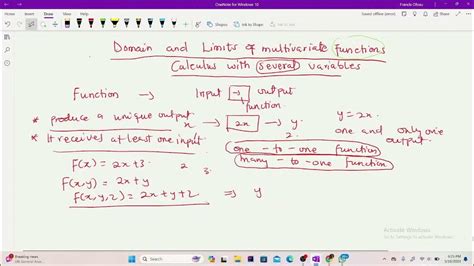 OneNote for Windows 10
Francis Ofosu
Domain and Limits of multivariate functions
Calculus with several variables
Function → Input → output
function
* produce a unique output
x → 2x → y
y = 2x
2
one and only one output
* It receives at least one input
one - to - one function
many - to - one function
F(x) = 2x + 3
2 3
F(x,y) = 2x + y
F(x,y,z) = 2x + y + z ⇒ y
Activate Windows
Go to Settings to activate Windows.
Breaking news
Search
6:25 PM